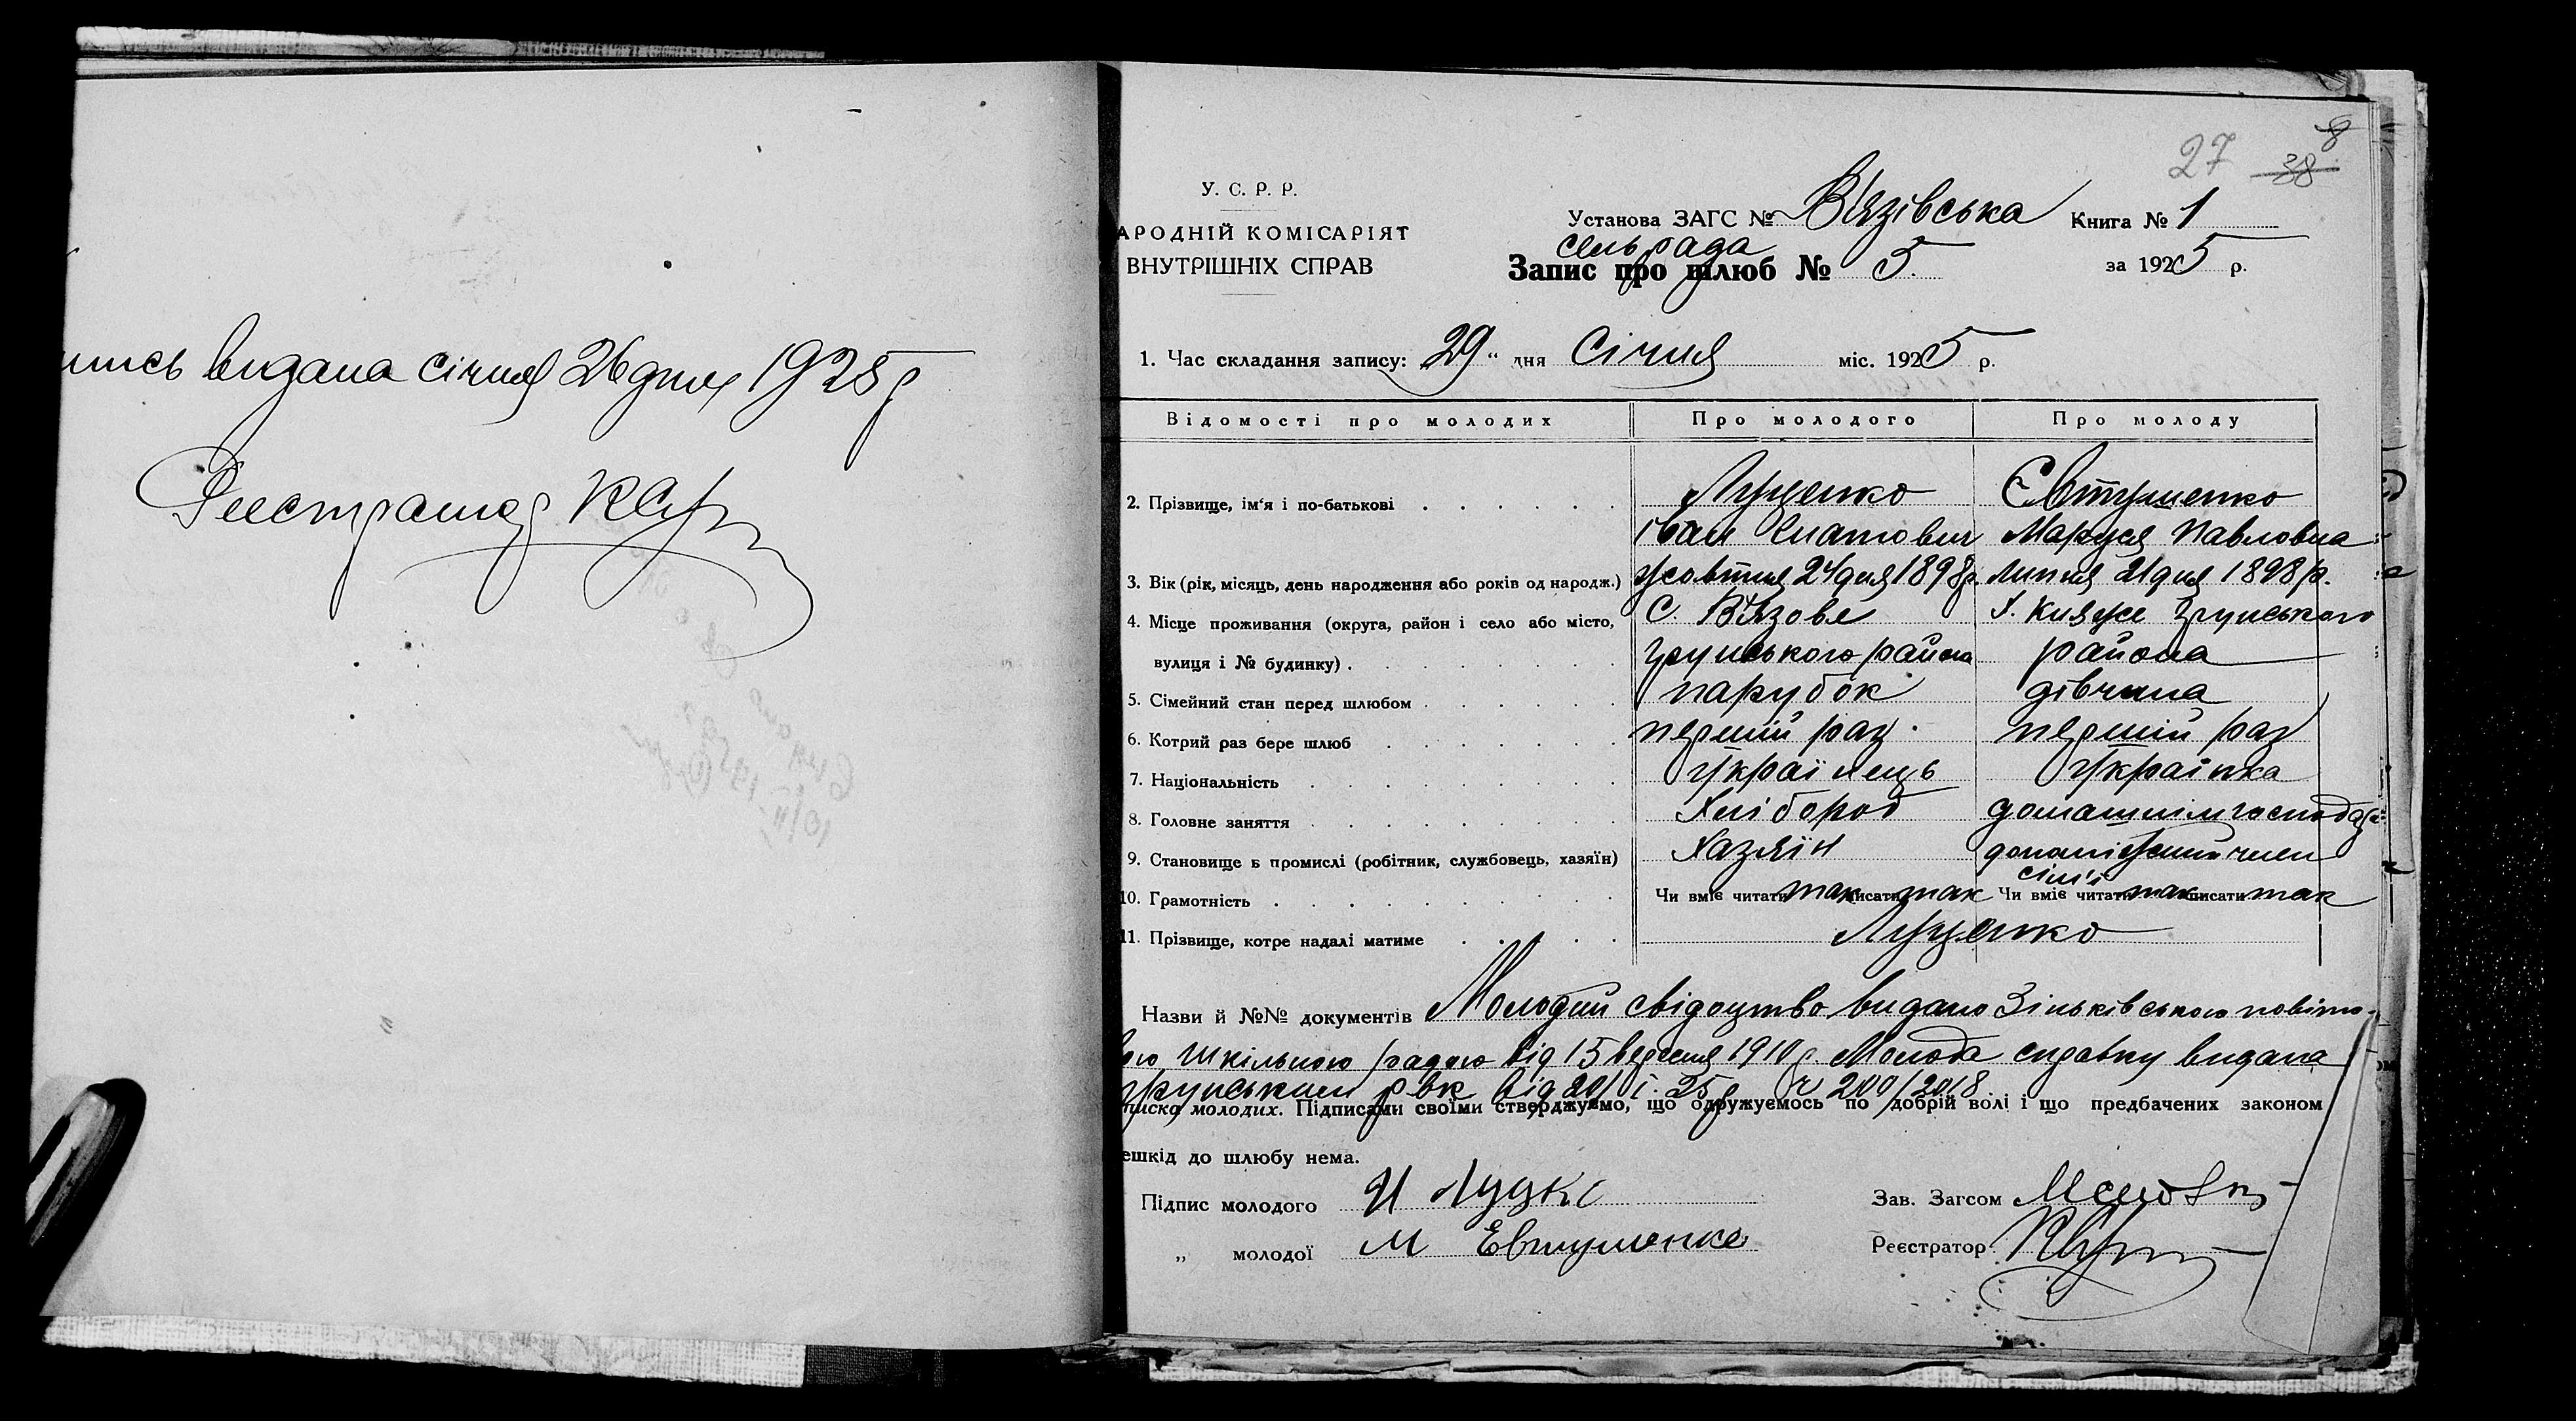 видана січня 26 дня 1925 р
Реєстратор
27 38 8
У. С. Р. Р.
АРОДНІЙ КОМІСАРІЯТ
ВНУТРІШНІХ СПРАВ
Установа ЗАГС № Вязівська Книга № 1
сельрада
Запис про шлюб № 5. за 1925 р.
1. Час складання запису: 29 " дня Січня міс. 1925 р.
Відомості про молодих Про молодого Про молоду
2. Прізвище, ім'я і по-батькові Луценко Євтушенко
Іван Гнатович Маруся Павловна
3. Вік (рік, місяць, день народження або років од народж.) жовтня 24 дня 1898 р. липня 21 дня 1898 р.
4. Місце проживання (округа, район і село або місто, С. Вязове х. Княже Грунського
вулиця і № будинку) Грунського района района
5. Сімейний стан перед шлюбом парубок дівчина
6. Котрий раз бере шлюб перший раз перший раз
7. Національність Українець Українка
8. Головне заняття Хлібороб домашнім господар
9. Становище в промислі (робітник, службовець, хазяїн) Хазяїн член
сім'ї
10. Грамотність Чи вміє читати так писати так Чи вміє читати так писати так
11. Прізвище, котре надалі матиме Луценко
Назви й №№ документів Молодий свідоцтво видано Зіньківською повіто-
вою шкільною радою від 15 вересня 1910 р. Молода справку видана
Грунським рвк від 20/I 25 р № 200/2018.
писка молодих. Підписами своїми стверджуємо, що одружуємось по добрій волі і що предбачених законом
ешкід до шлюбу нема.
Підпис молодого И Луцкс Зав. Загсом
„ молодої М Евтушенко Реєстратор